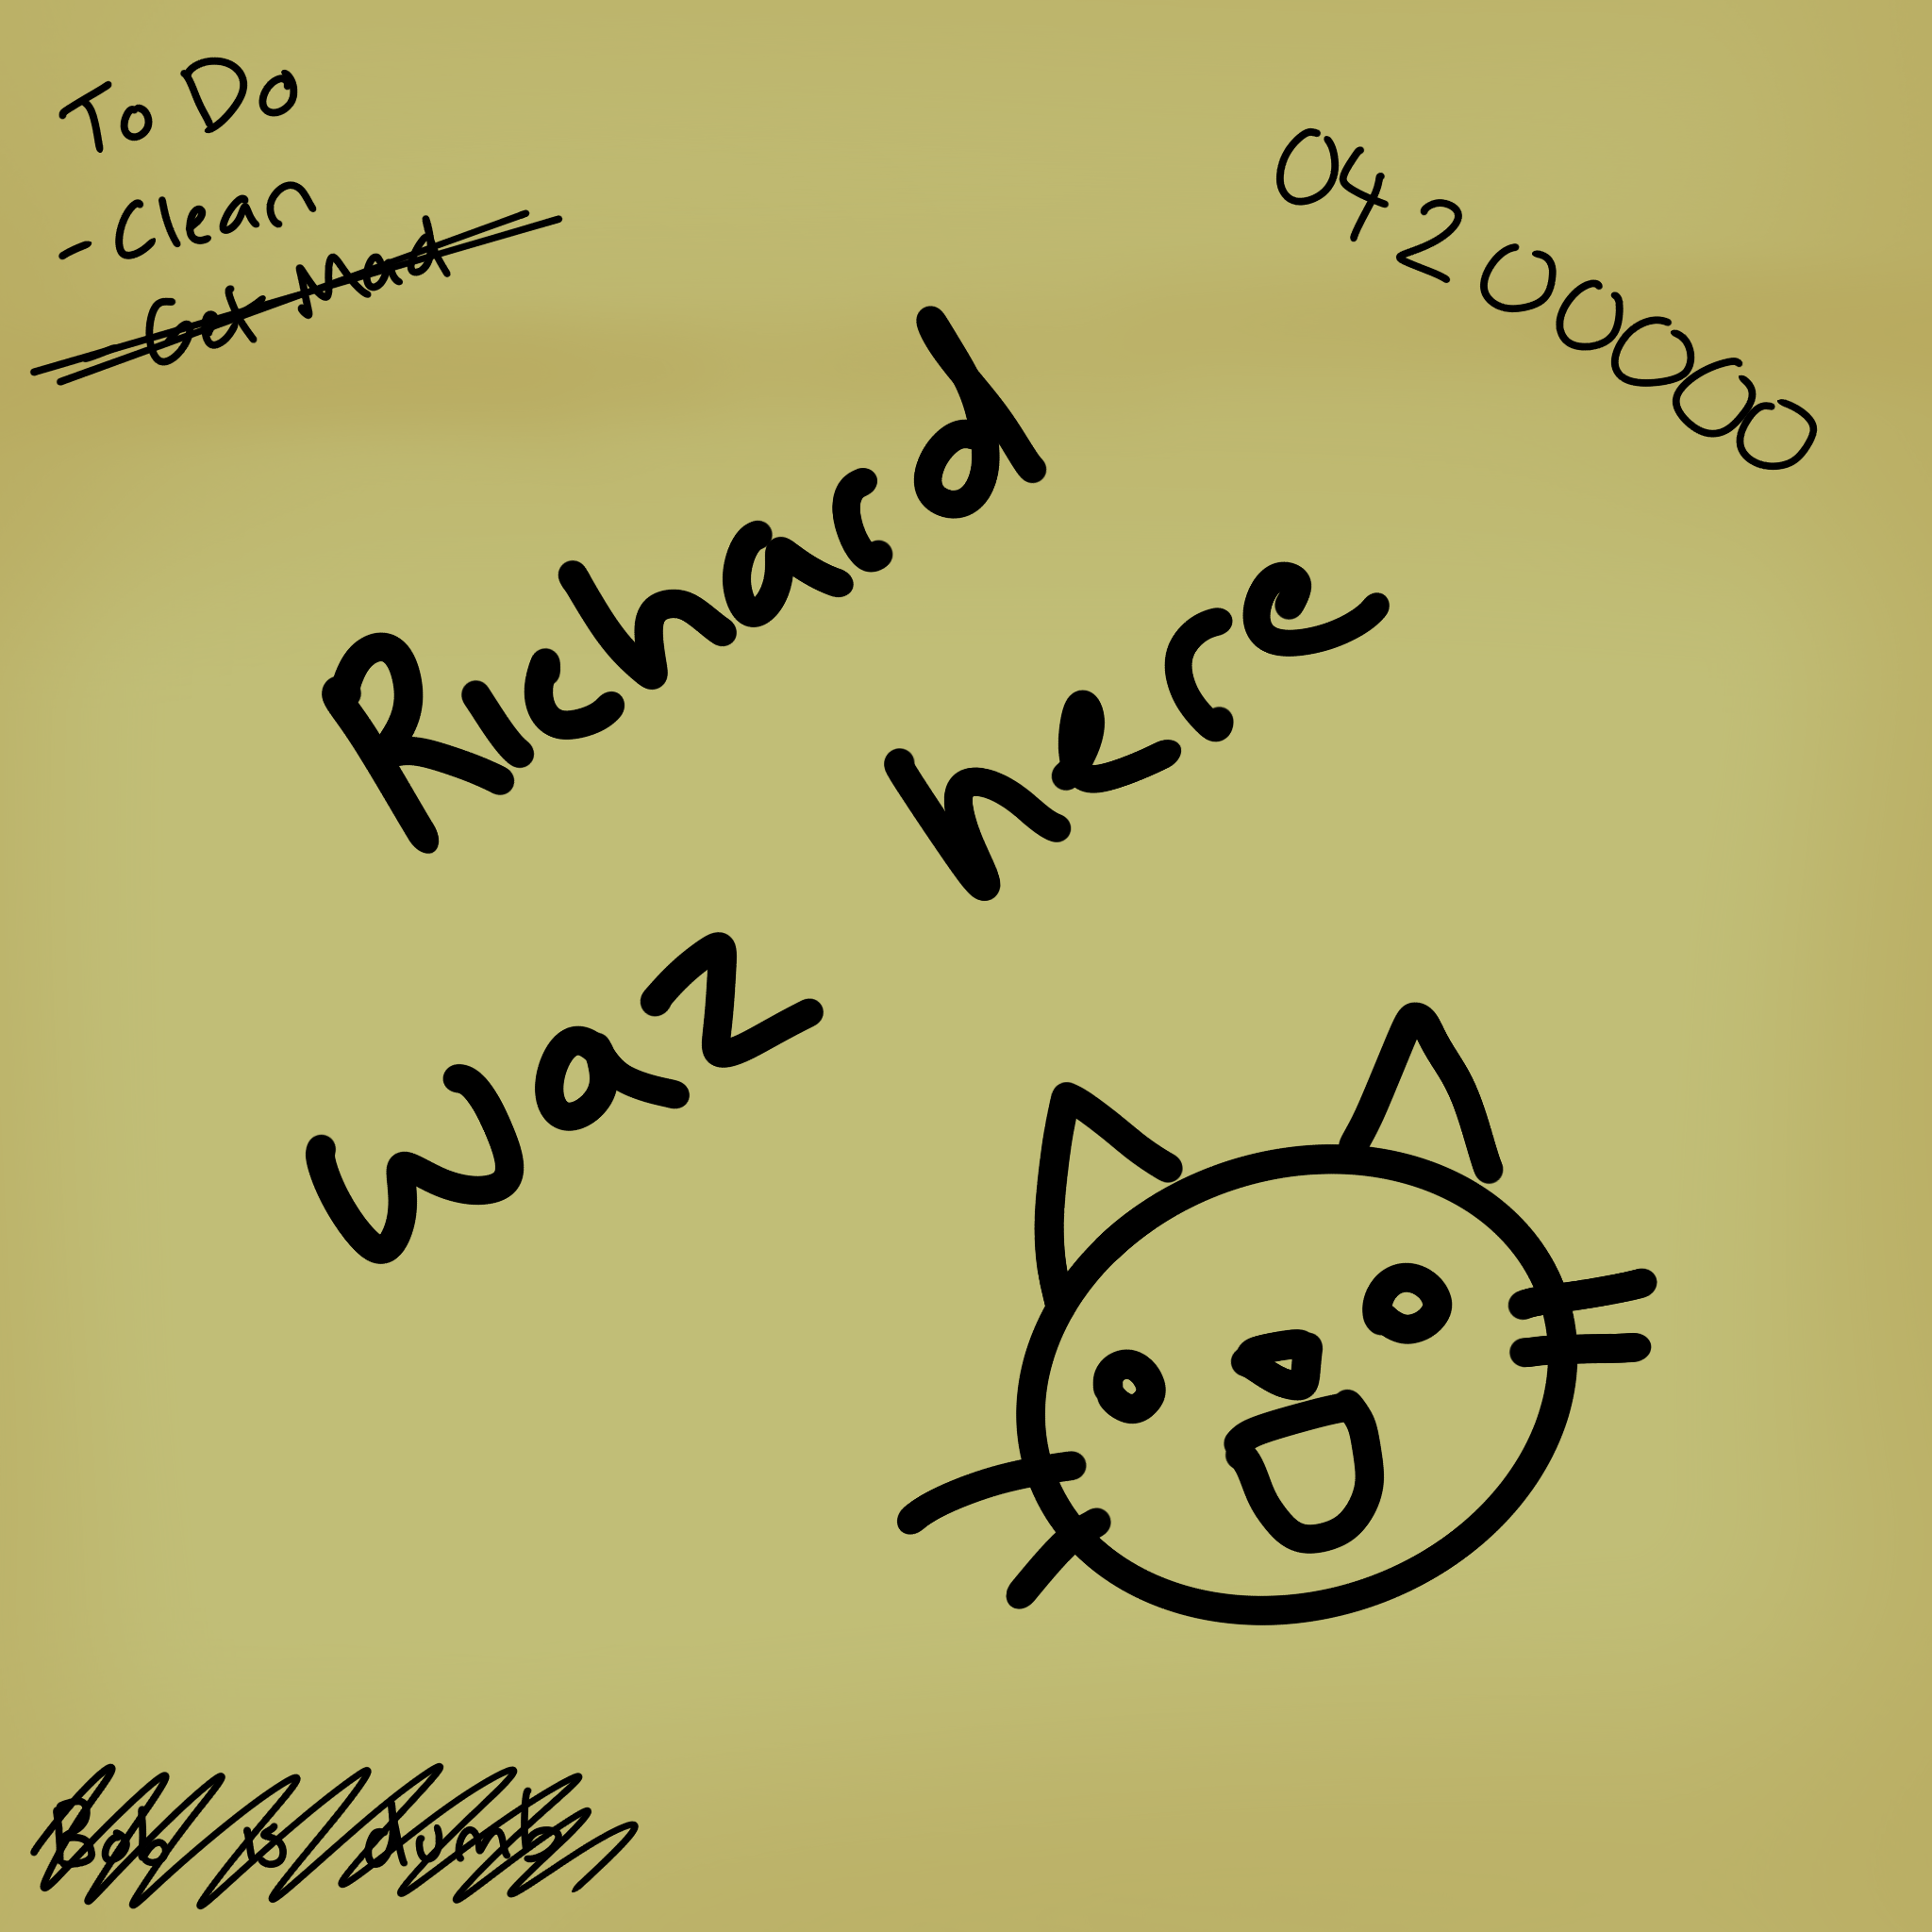 To Do
- Clean
- Get Intact
0420000000
Richard
waz here
Bob is dumb